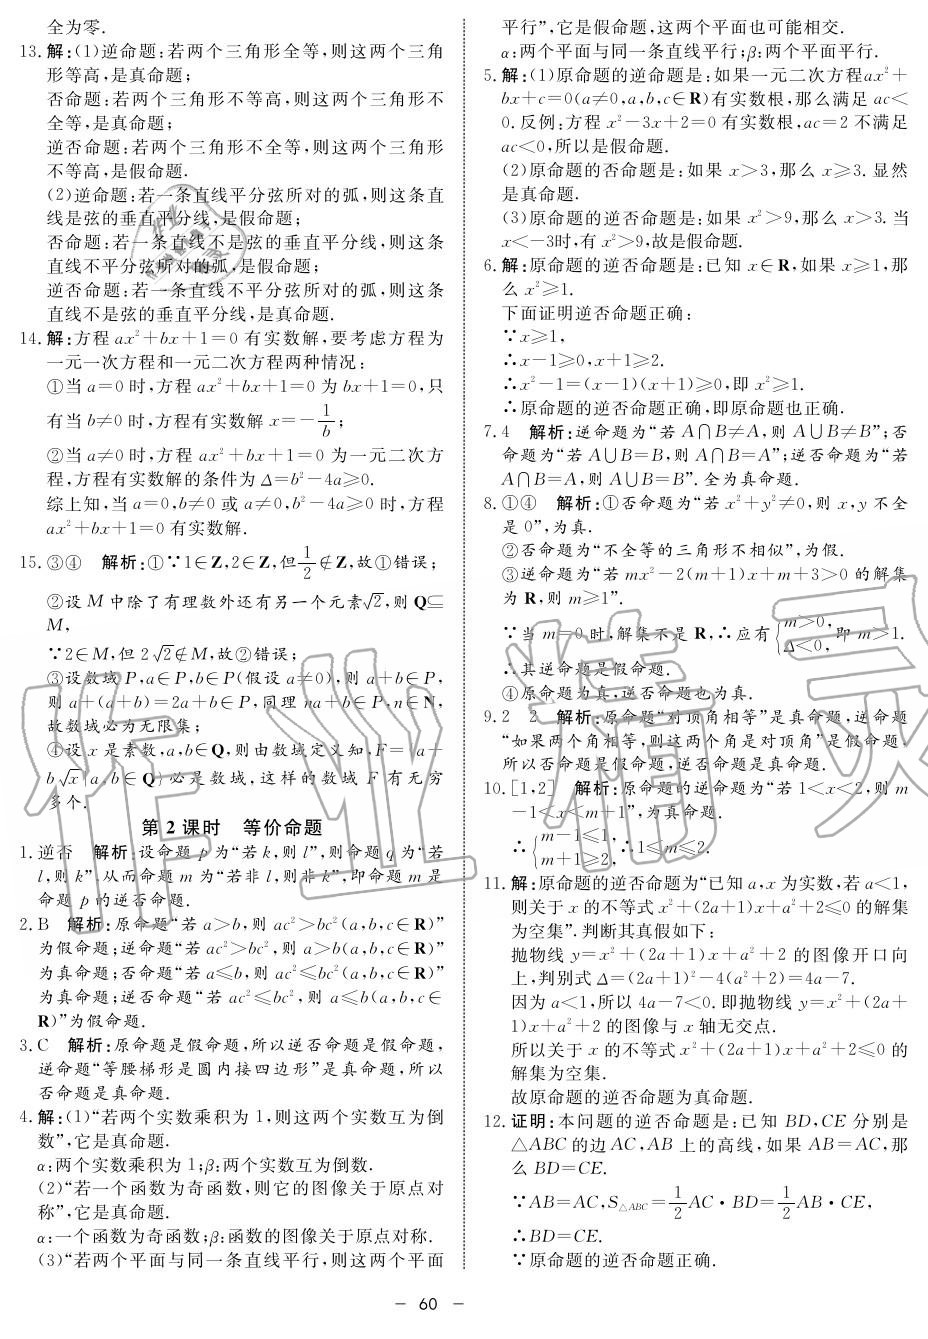 全为零.
13.解:(1)逆命题:若两个三角形全等,则这两个三角
形等高,是真命题;
否命题:若两个三角形不等高,则这两个三角形不
全等,是真命题;
逆否命题:若两个三角形不全等,则这两个三角形
不等高,是假命题.
(2)逆命题:若一条直线平分弦所对的弧,则这条直
线是弦的垂直平分线,是假命题;
否命题:若一条直线不是弦的垂直平分线,则这条
直线不平分弦所对的弧,是假命题;
逆否命题:若一条直线不平分弦所对的弧,则这条
直线不是弦的垂直平分线,是真命题.
14.解:方程 ax²+bx+1=0 有实数解,要考虑方程为
一元一次方程和一元二次方程两种情况:
①当 a=0 时,方程 ax²+bx+1=0 为 bx+1=0,只
有当 b≠0 时,方程有实数解 x=-1/b;
②当 a≠0 时,方程 ax²+bx+1=0 为一元二次方
程,方程有实数解的条件为 Δ=b²-4a≥0.
综上知,当 a=0,b≠0 或 a≠0,b²-4a≥0 时,方程
ax²+bx+1=0 有实数解.
15.③④ 解析:①∵1∈Z,2∈Z,但1/2∉Z,故①错误;
②设 M 中除了有理数外还有另一个元素√2,则 Q⊆
M,
∵2∈M,但 2√2∉M,故②错误;
③设数域 P,a∈P,b∈P(假设 a≠0),则 a+b∈P,
则 a+(a+b)=2a+b∈P,同理 na+b∈P,n∈N,
故数域必为无限集;
④设 x 是素数,a,b∈Q,则由数域定义知,F={a+
b√x|a,b∈Q}必是数域,这样的数域 F 有无穷
多个.
第 2 课时 等价命题
1.逆否 解析:设命题 p 为“若 k,则 l”,则命题 q 为“若
l,则 k”,从而命题 m 为“若非 l,则非 k”,即命题 m 是
命题 p 的逆否命题.
2.B 解析:原命题“若 a>b,则 ac²>bc²(a,b,c∈R)”
为假命题;逆命题“若 ac²>bc²,则 a>b(a,b,c∈R)”
为真命题;否命题“若 a≤b,则 ac²≤bc²(a,b,c∈R)”
为真命题;逆否命题“若 ac²≤bc²,则 a≤b(a,b,c∈
R)”为假命题.
3.C 解析:原命题是假命题,所以逆否命题是假命题,
逆命题“等腰梯形是圆内接四边形”是真命题,所以
否命题是真命题.
4.解:(1)“若两个实数乘积为 1,则这两个实数互为倒
数”,它是真命题.
α:两个实数乘积为 1;β:两个实数互为倒数.
(2)“若一个函数为奇函数,则它的图像关于原点对
称”,它是真命题.
α:一个函数为奇函数;β:函数的图像关于原点对称.
(3)“若两个平面与同一条直线平行,则这两个平面
平行”,它是假命题,这两个平面也可能相交.
α:两个平面与同一条直线平行;β:两个平面平行.
5.解:(1)原命题的逆命题是:如果一元二次方程ax²+
bx+c=0(a≠0,a,b,c∈R)有实数根,那么满足 ac<
0.反例:方程 x²-3x+2=0 有实数根,ac=2 不满足
ac<0,所以是假命题.
(2)原命题的否命题是:如果 x>3,那么 x≥3.显然
是真命题.
(3)原命题的逆否命题是:如果 x²>9,那么 x>3.当
x<-3时,有 x²>9,故是假命题.
6.解:原命题的逆否命题是:已知 x∈R,如果 x≥1,那
么 x²≥1.
下面证明逆否命题正确:
∵x≥1,
∴x-1≥0,x+1≥2.
∴x²-1=(x-1)(x+1)≥0,即 x²≥1.
∴原命题的逆否命题正确,即原命题也正确.
7.4 解析:逆命题为“若 A∩B≠A,则 A∪B≠B”;否
命题为“若 A∪B=B,则 A∩B=A”;逆否命题为“若
A∩B=A,则 A∪B=B”.全为真命题.
8.①④ 解析:①否命题为“若 x²+y²≠0,则 x,y 不全
是 0”,为真.
②否命题为“不全等的三角形不相似”,为假.
③逆命题为“若 mx²-2(m+1)x+m+3>0 的解集
为 R,则 m≥1”.
∵当 m=0 时,解集不是 R,∴应有{m>0,Δ<0,即 m>1.
∴其逆命题是假命题.
④原命题为真,逆否命题也为真.
9.2 2 解析:原命题“对顶角相等”是真命题,逆命题
“如果两个角相等,则这两个角是对顶角”是假命题,
所以否命题是假命题,逆否命题是真命题.
10.[1,2] 解析:原命题的逆命题为“若 1<x<2,则 m
-1<x<m+1”,为真命题.
∴{m-1≤1,m+1≥2,∴1≤m≤2.
11.解:原命题的逆否命题为“已知 a,x 为实数,若 a<1,
则关于 x 的不等式 x²+(2a+1)x+a²+2≤0 的解集
为空集”.判断其真假如下:
抛物线 y=x²+(2a+1)x+a²+2 的图像开口向
上,判别式 Δ=(2a+1)²-4(a²+2)=4a-7.
因为 a<1,所以 4a-7<0.即抛物线 y=x²+(2a+
1)x+a²+2 的图像与 x 轴无交点.
所以关于 x 的不等式x²+(2a+1)x+a²+2≤0 的
解集为空集.
故原命题的逆否命题为真命题.
12.证明:本问题的逆否命题是:已知 BD,CE 分别是
△ABC 的边 AC,AB 上的高线,如果 AB=AC,那
么 BD=CE.
∵AB=AC,S△ABC=1/2AC·BD=1/2AB·CE,
∴BD=CE.
∵原命题的逆否命题正确.
- 60 -
作业精灵